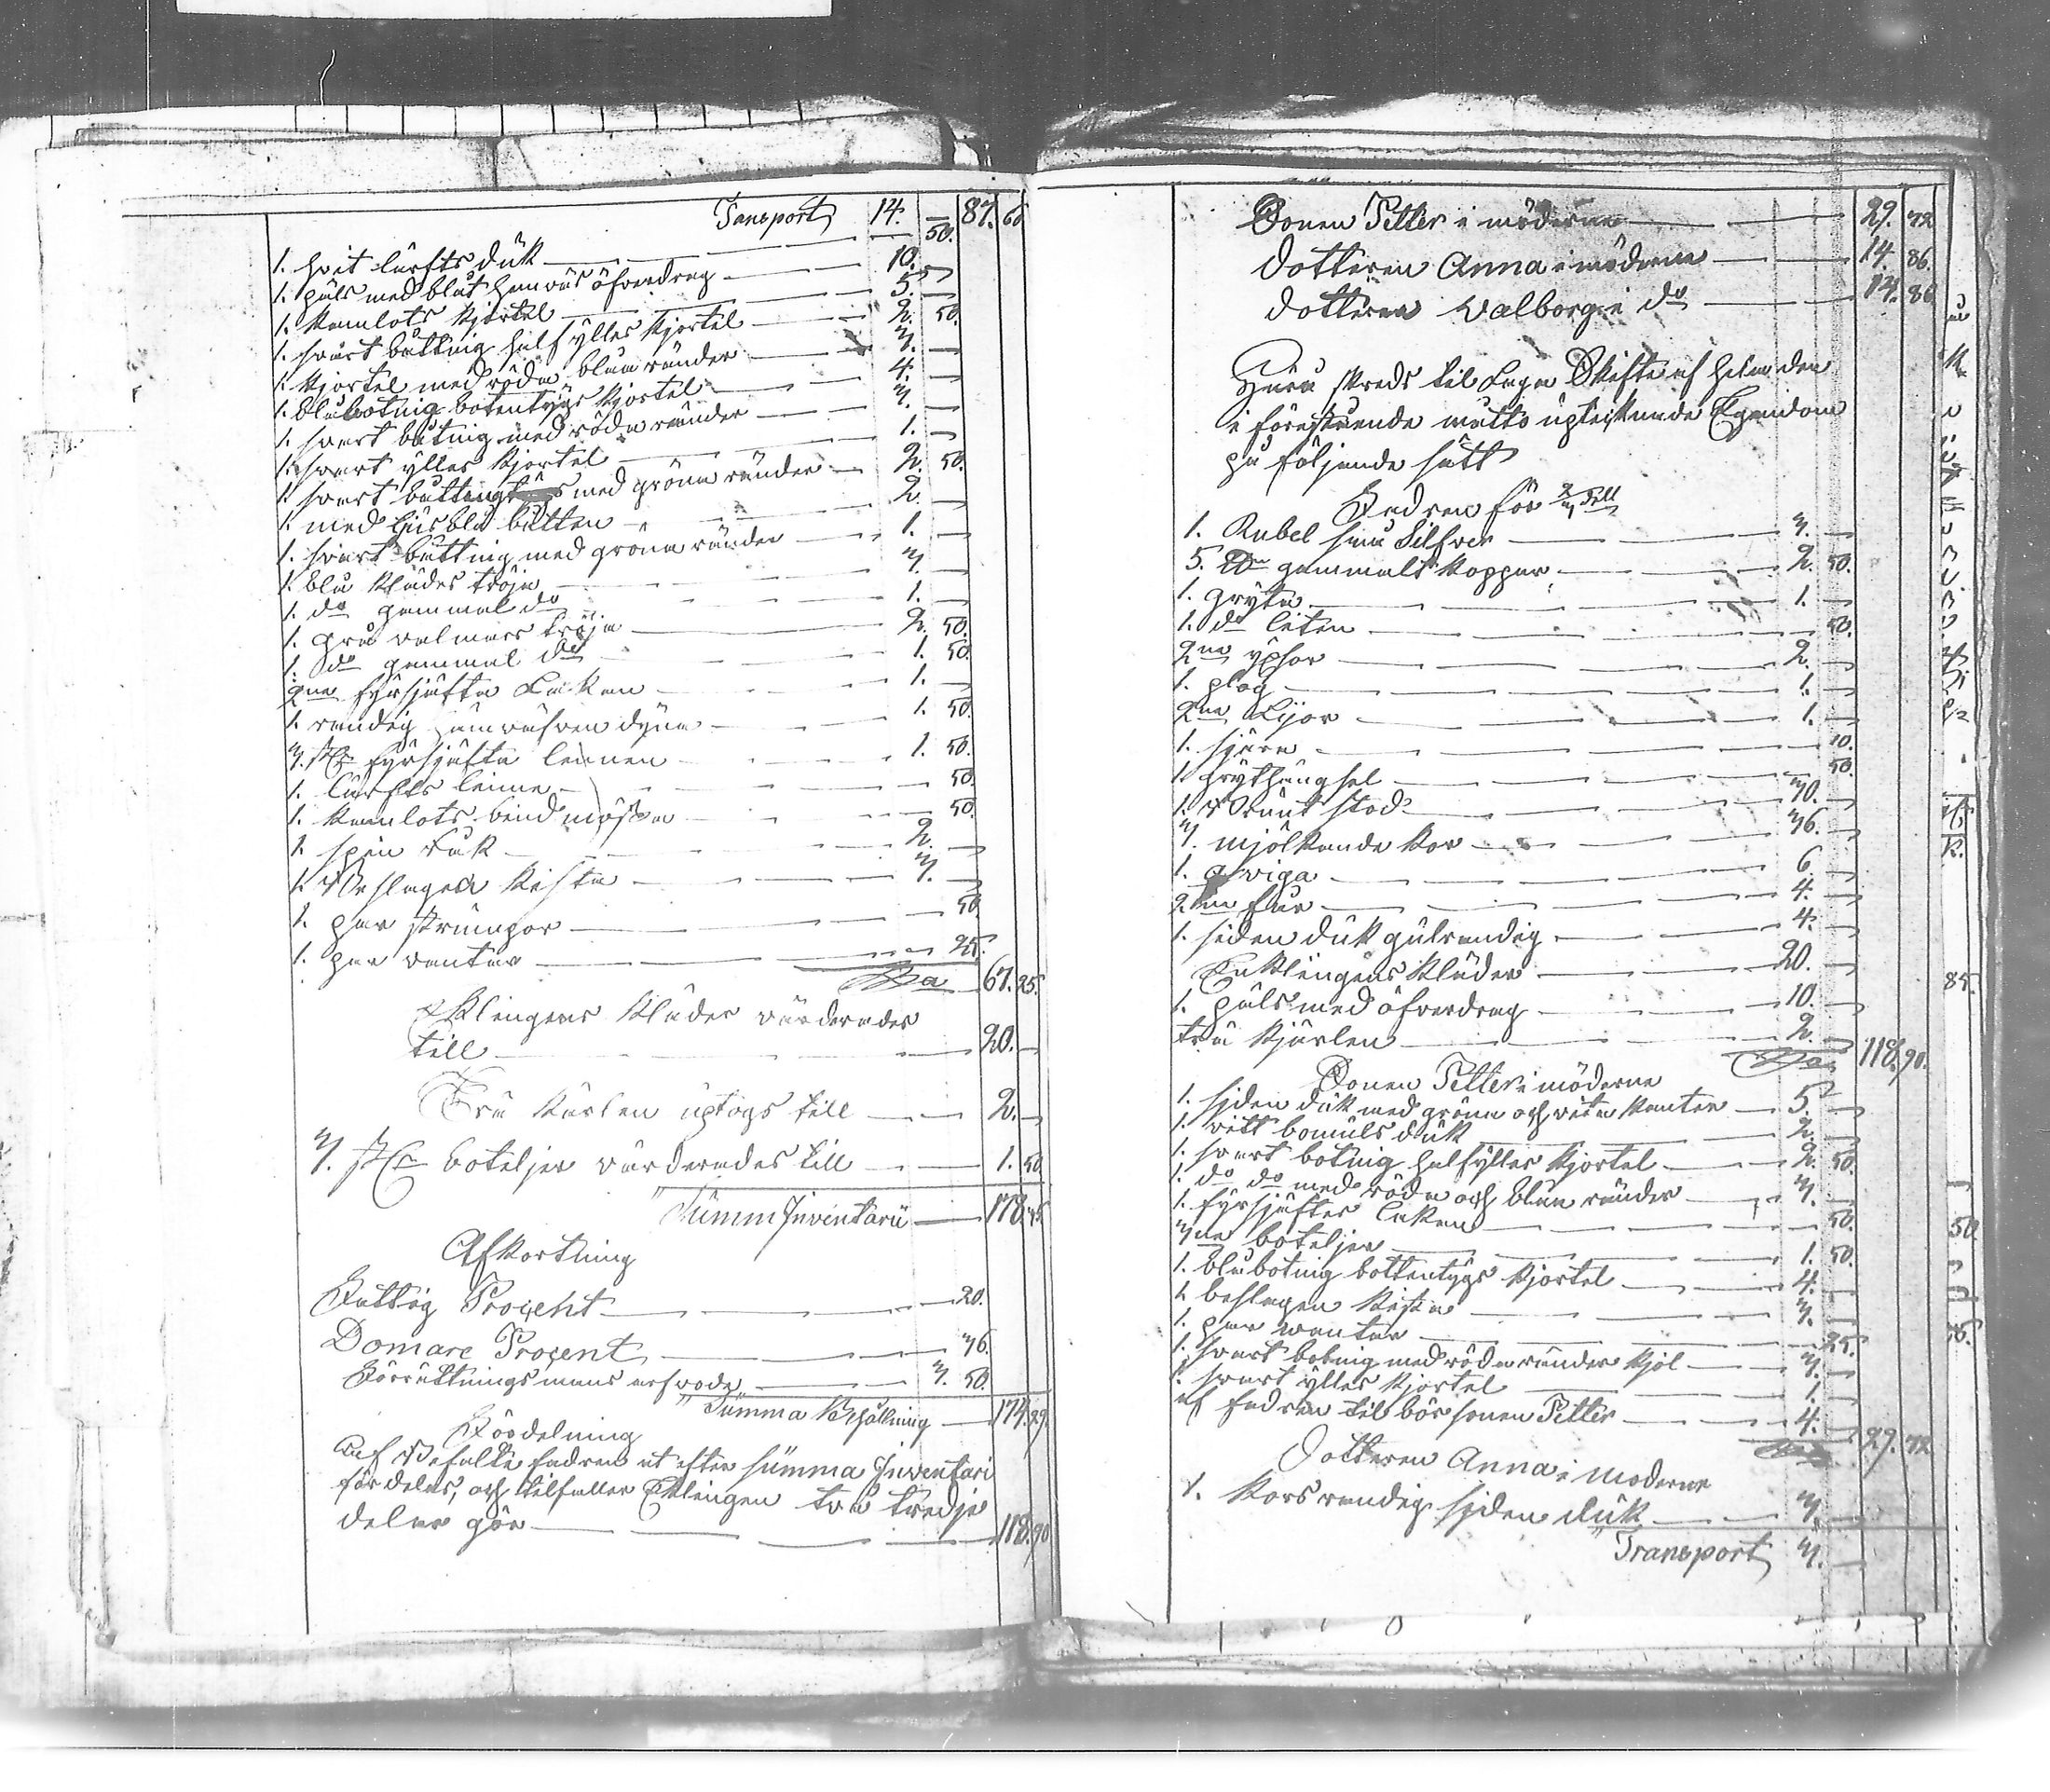 Transport 14. — 87. 60
1. hvit lärfts duk — 50.
1. päls med blått hemväfs öfverdrag — 10. —
1. kamlots kjortel — 5. —
1. svart båttnig half ylles kjortel — 2. 50.
1. kjortel med röda blåa ränder — 3. —
1. blåbotnig botentygs kjortel — 4. —
1. svart båtnig med röda ränder — 3. —
1. svart ylles kjortel — 1. —
1. svart båttnig med gröna ränder — 2. 50.
1. med ljusblå båtten — 2. —
1. svart båttnig med gröna ränder — 1. —
1. blå klädes tröja — 3. —
1. do gammal do — 1. —
1. grå valmars tröja — 2. 50.
1. do gammal do — 1. 50.
2ne fyrskäfta Lakan — 1. —
1. randig dyna — 1. 50.
3. st fyrskäfta linnen — 1. 50.
1. lärfts linne — 50.
1. kamlots bindmössa — 50.
1. spin råk — 2. —
1. Beslagen kista — 3. —
1. par strumpor — 50.
1. par vantar — 25.
Sa 67. 25.
Enklingens kläder värderades
till — 20. —
Trä kärlen uptogs till — 2. —
3. st boteljer värderades till — 1. 50.
Summ Inventarii — 178. 35
Afkortning
Fattig Procent — 20.
Domare Procent — 36.
Förrättnings mans arfvode — 3. 50.
Summa Behållning — 174. 29.
Fördelning
fadren at efter Summa Inventari
fördelas, och tilfaller Enklingen två tredje
delar gör — 118. 90
Sonen Petter i möderne — 29. 72
Dotteren Anna i möderne — 14. 86.
Dotteren Walborg i do — 14. 86
Häru skreds til Laga Skifte af hela den
i förestående måtto uptecknade Egendom
på följande sätt
Fadren för 2/3 dell
1. Rubel sma Silfver — 3. —
5. gammalt koppar — 2. 50.
1. gryta — 1. —
1. do liten — 50.
2ne yxor — 2. —
1. plog — 1. —
2ne Lijor — 1. —
1. skära — 10.
1. grythängsel — 50.
1. Brunt stod — 30. —
3. mjölkande kor — 36. —
1. qviga — 6. —
2ne får — 4. —
1. siden duk gulrandig — 4. —
Enklingens kläder — 20. —
1. päls med öfverdrag — 10. —
trä kjärlen — 2. —
Sa 118. 90.
Sonen Petter i möderne
1. siden duk med gröna och vita kanter — 5. —
1. vitt bomuls duk — 2. —
1. svart botnig halfylles kjortel — 2. 50.
1. do do med röda och blåa ränder — 3. —
1. fyrskäftes lakan — 50.
3ne boteljer — 1. 50.
1. blåbotnig bottentygs kjortel — 4. —
1. beslagen kista — 3. —
1. par vantar — 25.
1. svart botnig med röda ränder kjol — 3. —
1. svart ylles kjortel — 1. —
af fadren tilbör sonen Petter — 4. —
Sa 29. 72
Dotteren Anna i moderne
1. korsrandig siden duk — 3. —
Transport 3. —